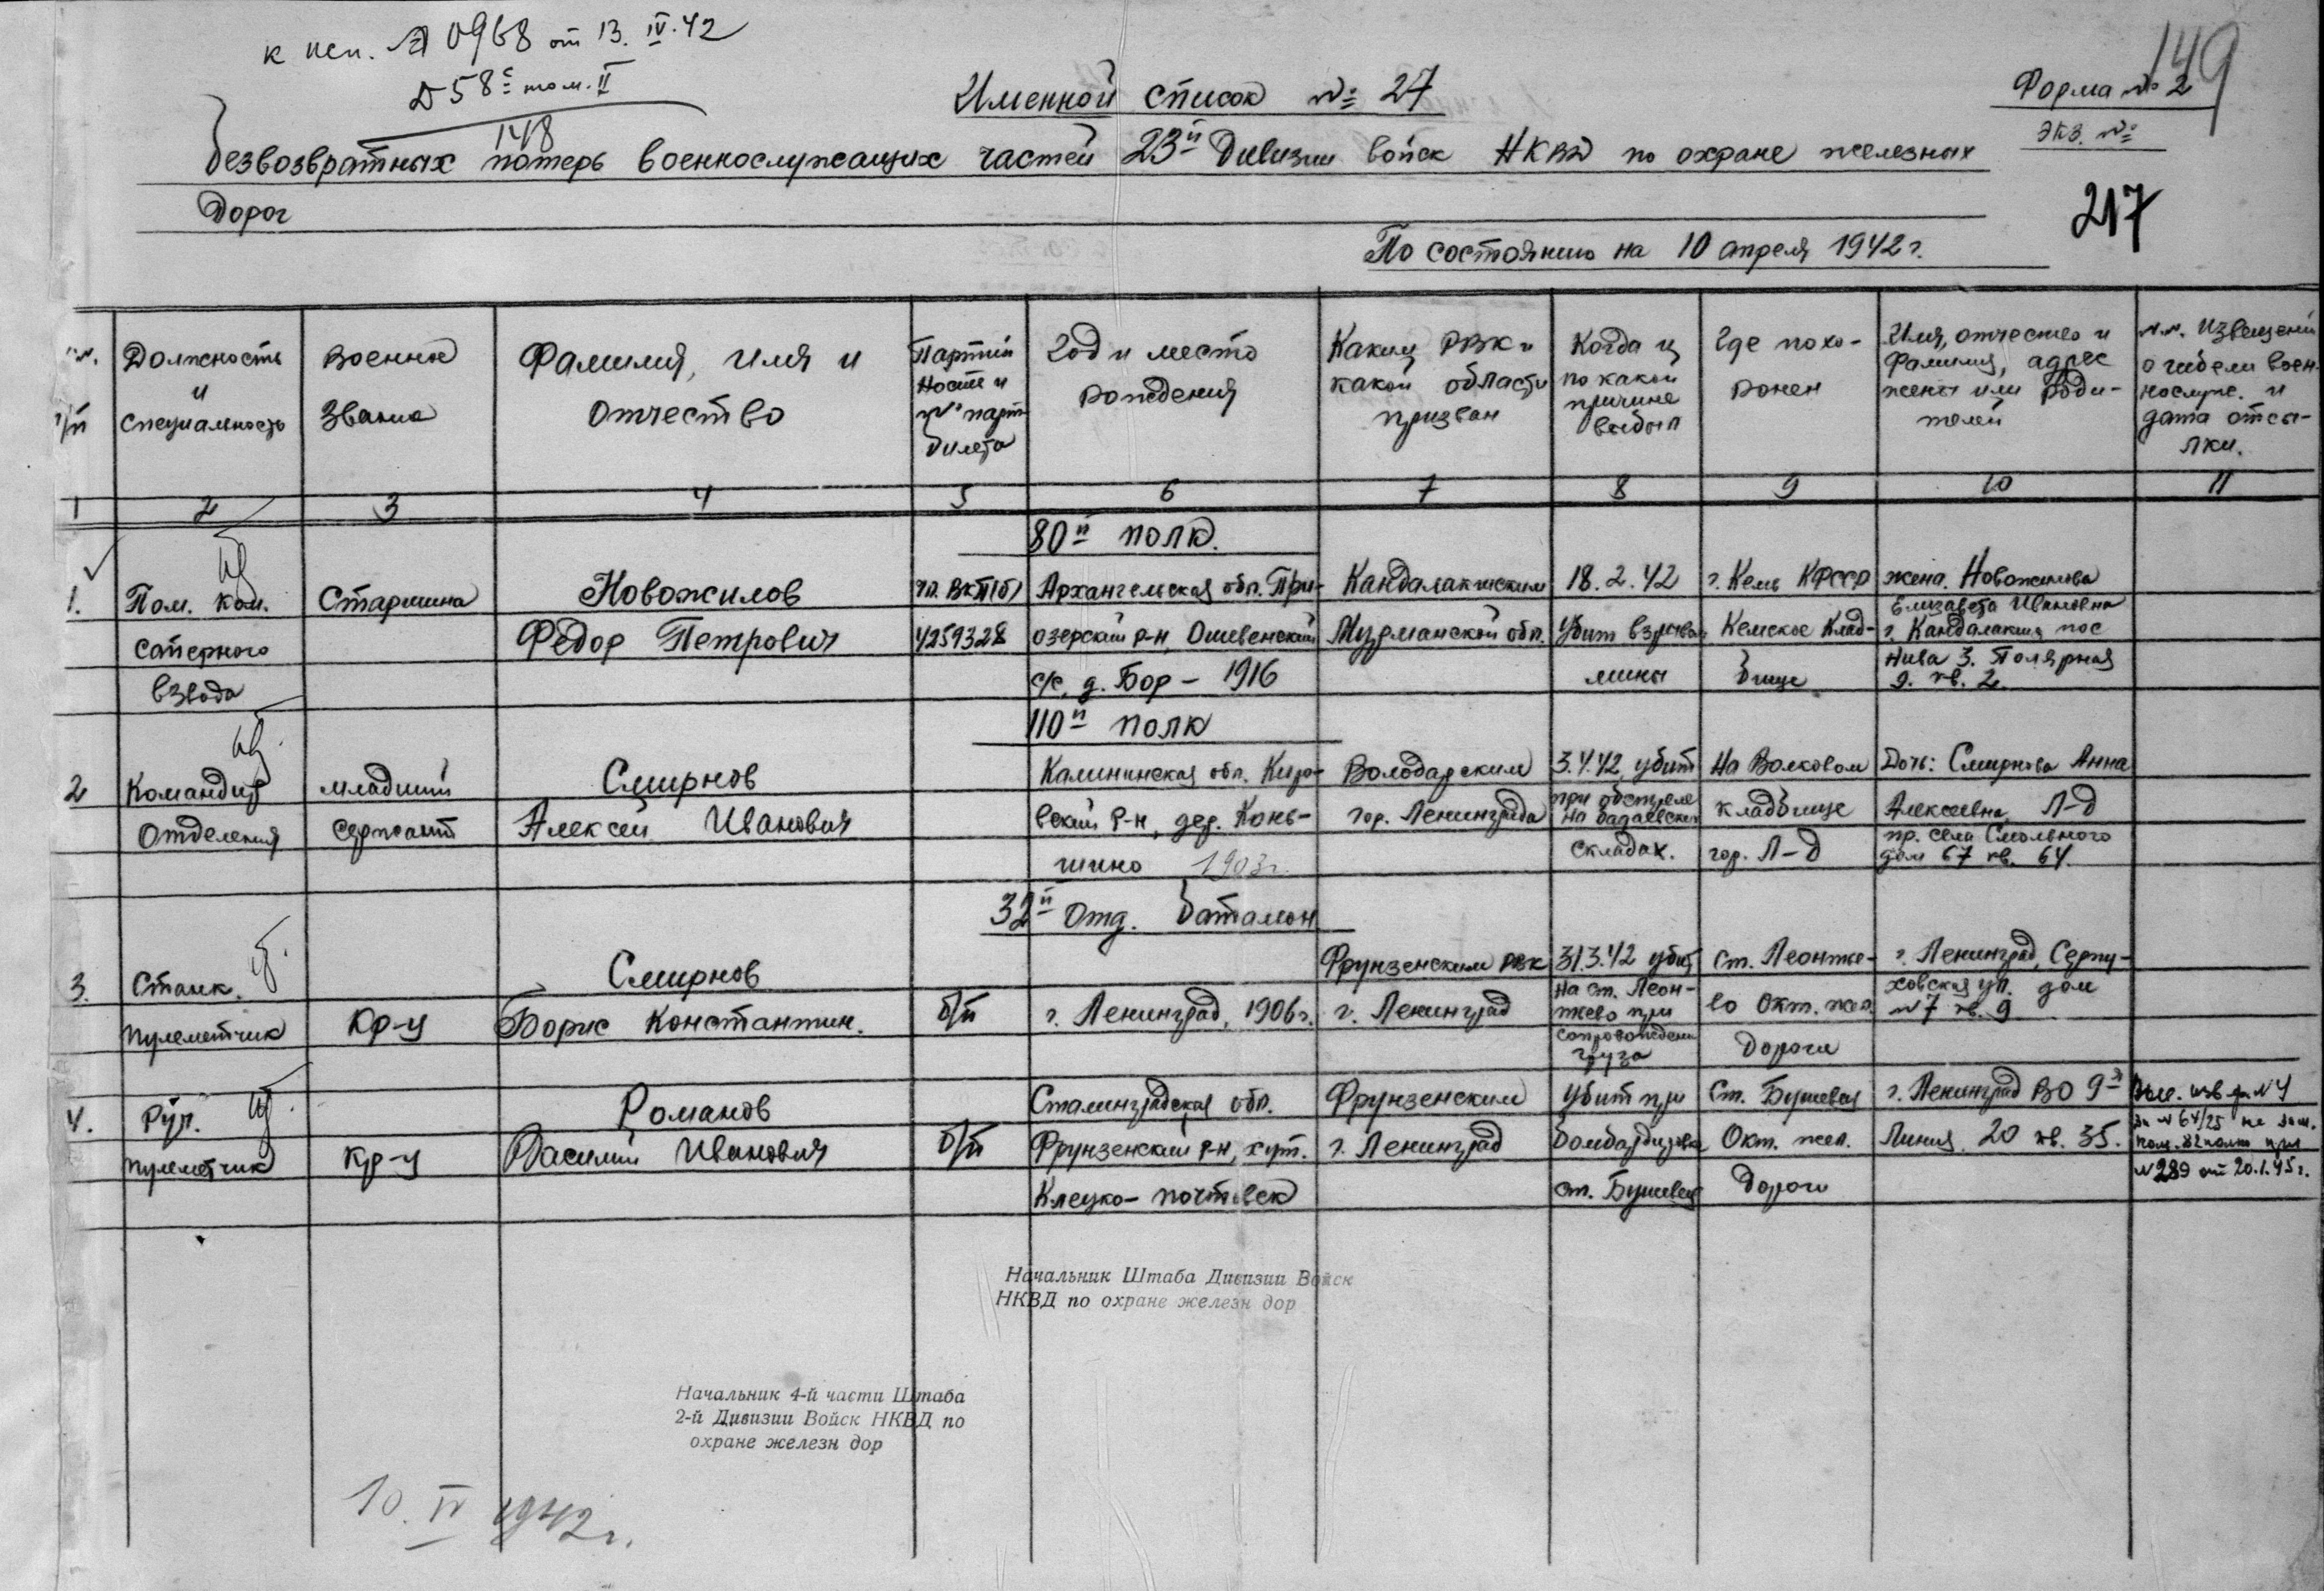 к исх. № 0968 от 13.IV.42
Д 58с том. II
148
149
Форма № 2
Экз. №
217
Именной список № 27
безвозвратных потерь военнослужащих частей 23й Дивизии войск НКВД по охране железных
дорог
По состоянию на 10 апреля 1942 г.
п/п
Должность
и
специальность
Военное
звание
Фамилия, имя и
отчество
Партий
ность и
№ парт
билета
Год и место
рождения
Каким РВК и
какой области
призван
Когда и
по какой
причине
выбыл
Где похо-
ронен
Имя, отчество и
фамилия, адрес
жены или роди-
телей
№№ извещений
о гибели воен-
нослуж. и
дата отсы-
лки.
1 2 3 4 5 6 7 8 9 10 11
80й полк.
1.
Пом. ком.
саперного
взвода
Старшина
Новожилов
Федор Петрович
чл. ВКП(б)
4259328
Архангельская обл. При-
озерский р-н, Ошевенский
с/с, д. Бор - 1916
Кандалакшским
Мурманской обл.
18.2.42
Убит взрывом
мины
г. Кемь КФССР
Кемское клад-
бище
жена. Новожилова
Елизавета Ивановна
г. Кандалакша пос
Нива 3. Полярная
9. кв. 2.
110й полк
2
Командир
отделения
младший
сержант
Смирнов
Алексей Иванович
Калининская обл. Киро-
вский р-н, дер. Конь-
шино 1903 г.
Володарским
гор. Ленинграда
3.4.42 убит
при обстреле
на бадаевских
складах.
На Волковом
кладбище
гор. Л-д
Дочь: Смирнова Анна
Алексеевна, Л-д
пр. села Смоленского
дом 67 кв. 64.
32й отд. батальон
3.
Станк.
пулеметчик
Кр-ц
Смирнов
Борис Константин.
б/п
г. Ленинград, 1906 г.
Фрунзенским РВК
г. Ленинград
31.3.42 убит
на ст. Леон-
тьево при
сопровождении
груза
ст. Леонтье-
во Окт. жел.
дороги
г. Ленинград, Серпу-
ховская ул. дом
№7 кв. 9
4.
Руч.
пулеметчик
Кр-ц
Романов
Василий Иванович
б/п
Сталинградская обл.
Фрунзенский р-н, хут.
Клецко-почтовск
Фрунзенским
г. Ленинград
Убит при
бомбардировке
ст. Бушевец
Ст. Бушевец
Окт. жел.
дороги
г. Ленинград ВО 9я
Линия 20 кв. 35.
Выс. изв. ф. №4
за № 64/25
№ 289 от 20.1.45 г.
Начальник Штаба Дивизии Войск
НКВД по охране железн дор
Начальник 4-й части Штаба
2-й Дивизии Войск НКВД по
охране железн дор
10.IV 1942 г.